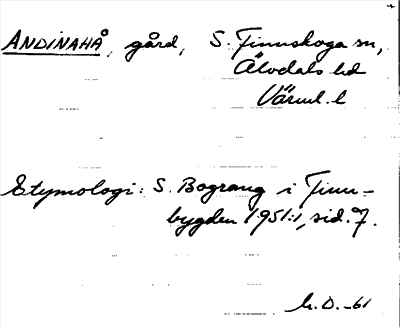 ANDINAHÅ, gård, S. Finnskoga sn,
Älvdals hd
Värml. l
Etymologi: S. Bograng i Finn-
bygden 1951:1, sid. 7.
h.D. -61